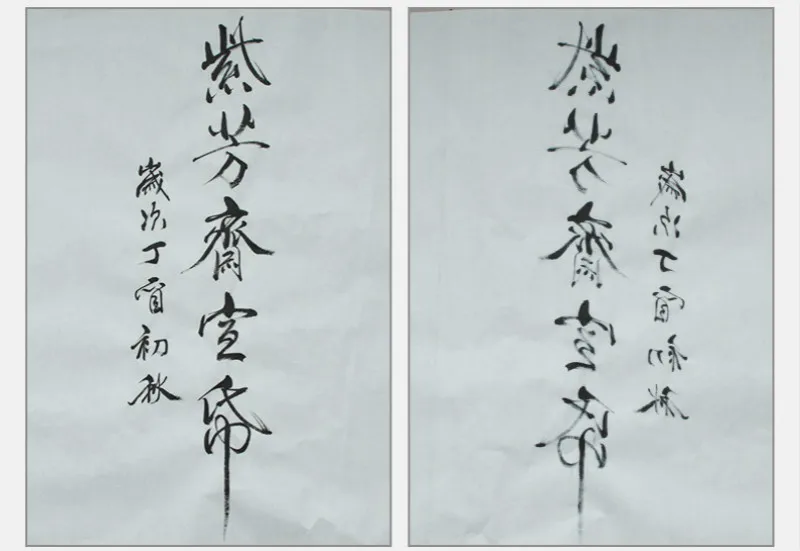 紫芳齋宣帋
歲次丁酉初秋
紫芳齋宣帋
歲次丁酉初秋